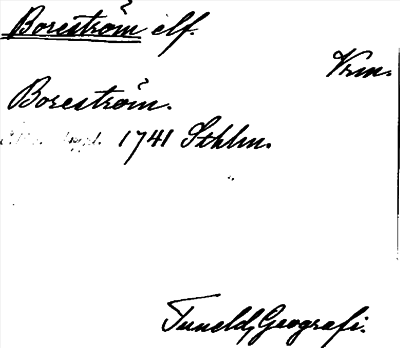 Boreström elf.
Vrm.
Boreström.
1741 Sthlm.
Tuneld, Geografi.